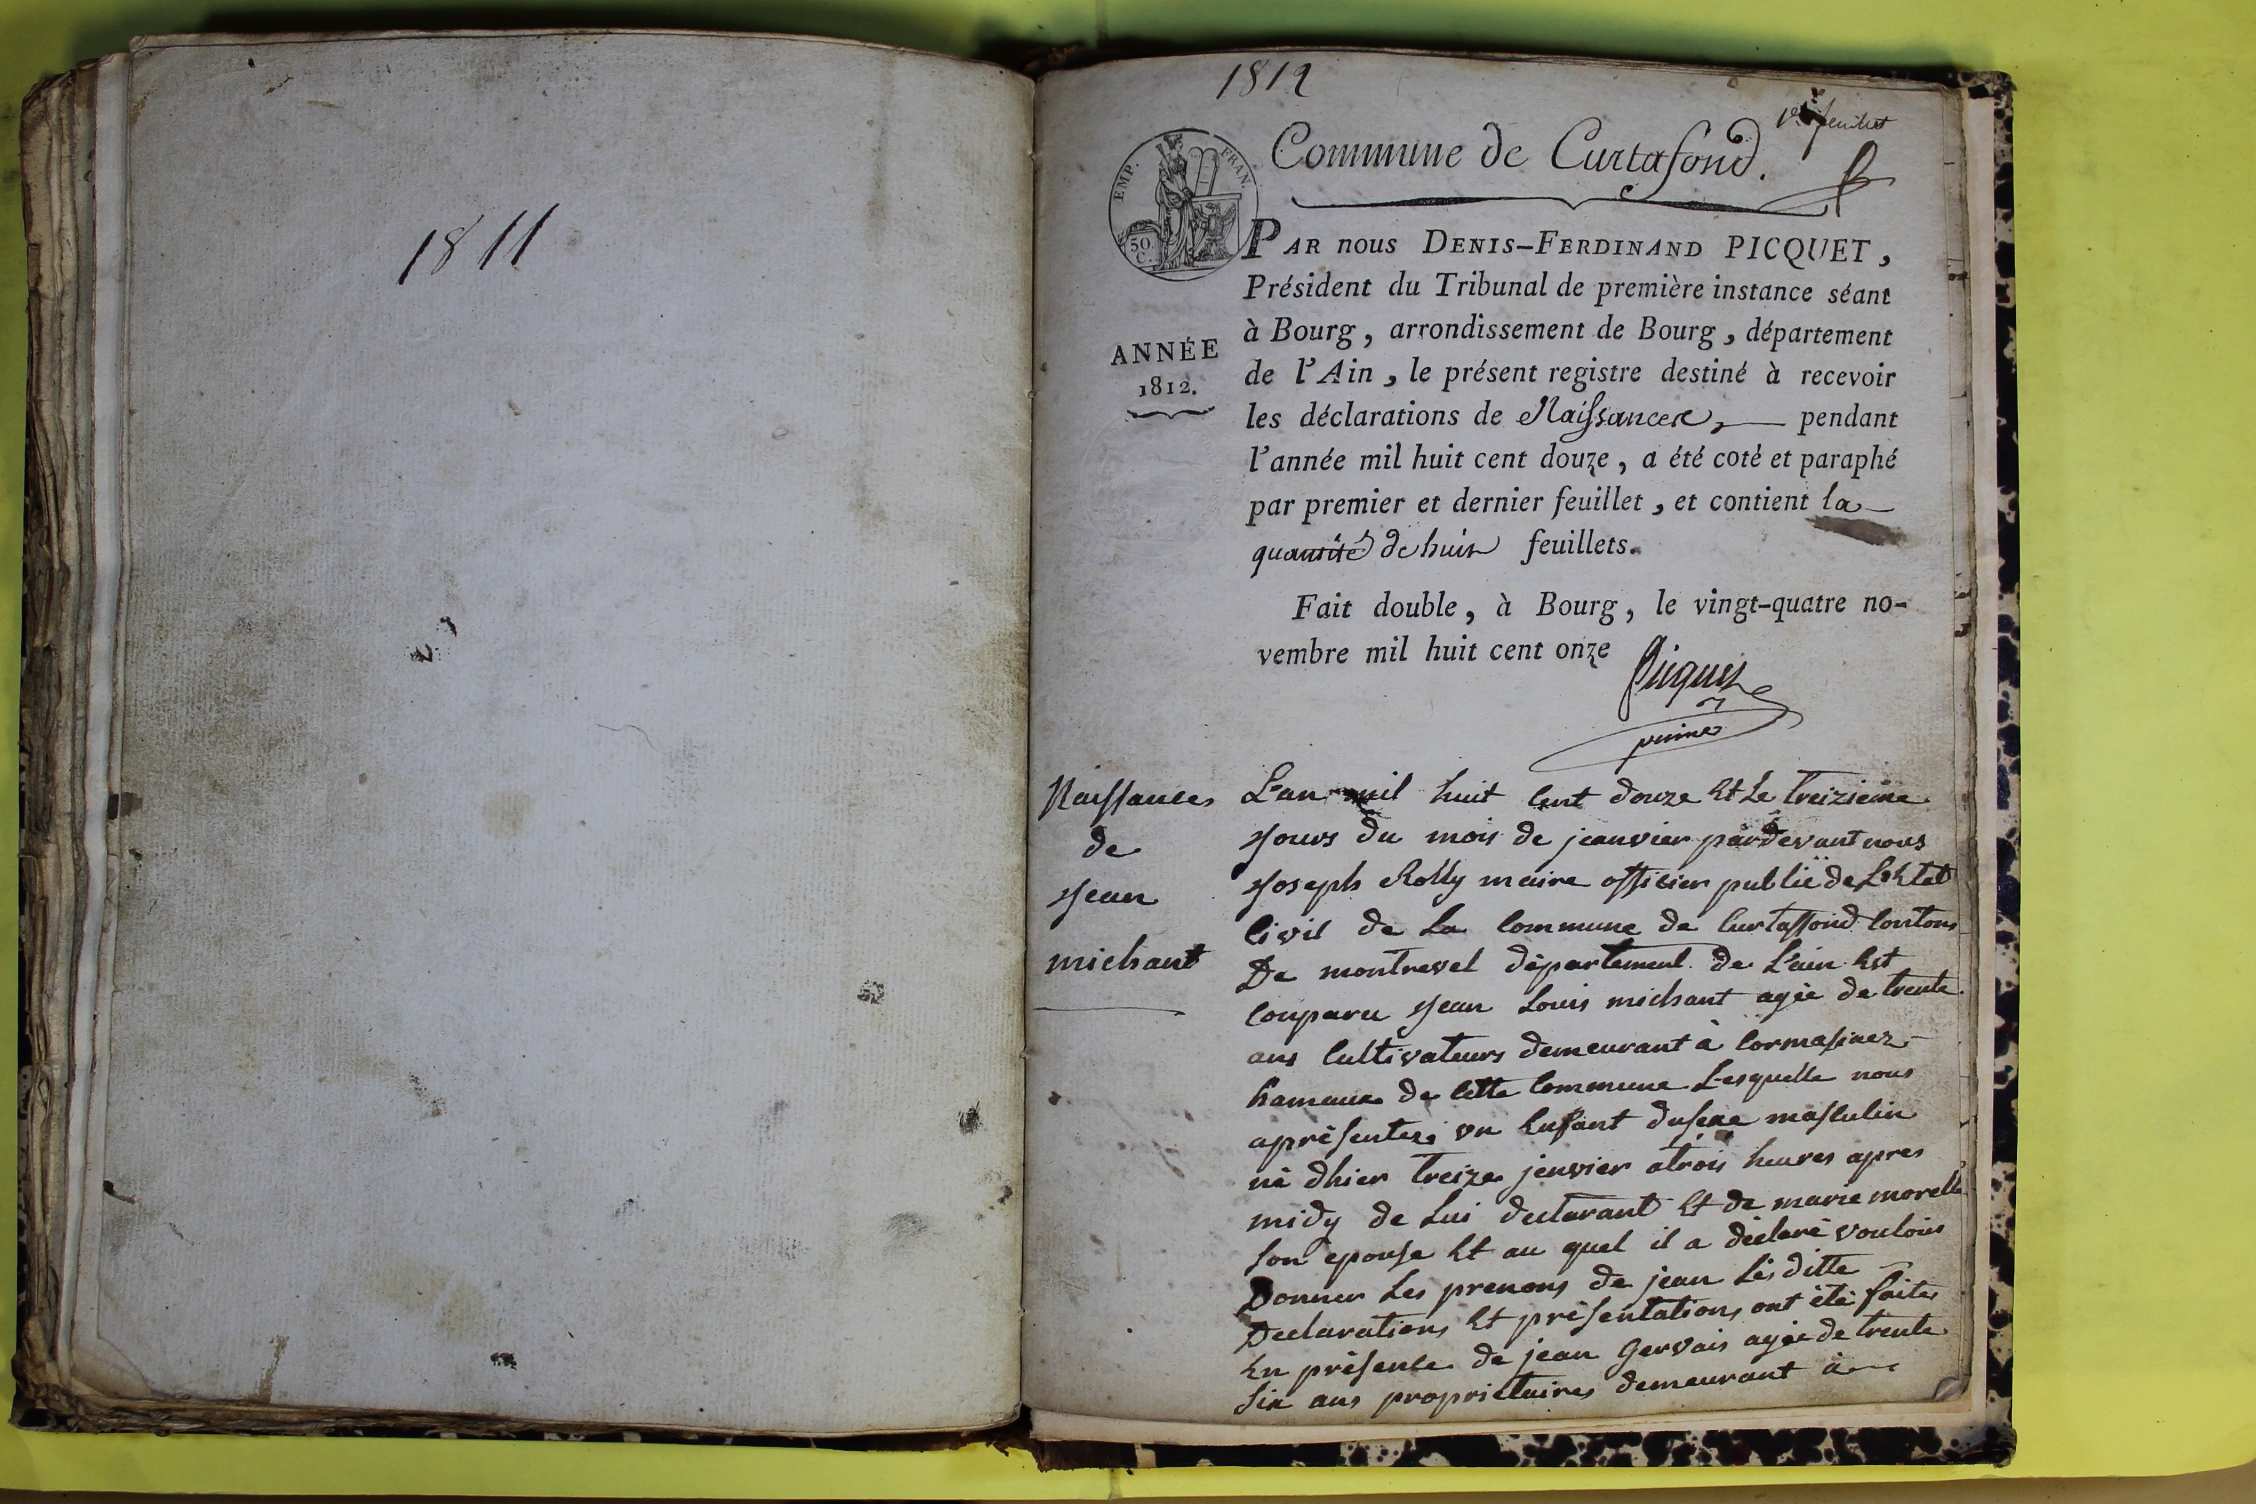 1811
1812
1er feuillet
Commune de Curtafond.
EMP. FRAN.
50. C.
PAR nous DENIS-FERDINAND PICQUET,
Président du Tribunal de première instance séant
à Bourg, arrondissement de Bourg, département
ANNÉE
1812.
de l'Ain, le présent registre destiné à recevoir
les déclarations de Naissances, pendant
l'année mil huit cent douze, a été coté et paraphé
par premier et dernier feuillet, et contient la
quantité de huit feuillets.
Fait double, à Bourg, le vingt-quatre no-
vembre mil huit cent onze
Picquet
Naissances
de
Jean
michant
L'an mil huit cent douze Et Le treizieme
Jours du mois de jeanvier pardevant nous
Joseph Rolly maire officier publii de L'Etat
Civil de La Commune de Curtaffond Contons
De montrevel département de L'ain Est
Conparu Jean Louis michant agée de trente
ans Cultivateurs demeurant à Cormasinez
hameaux de Cette Commune Lesquelle nous
aprésentez un Enfant dusexe masculin
né dhier treize jenvier atrois heures apres
midy de Lui declarant Et de marie morelle
son epouse Et au quel il a déclaré vouloir
Donner Les prenons de jean Lés ditte
Declarations Et présentations ont été faites
En présence de jean Gervais agée de trente
six ans proprietaires demeurant à